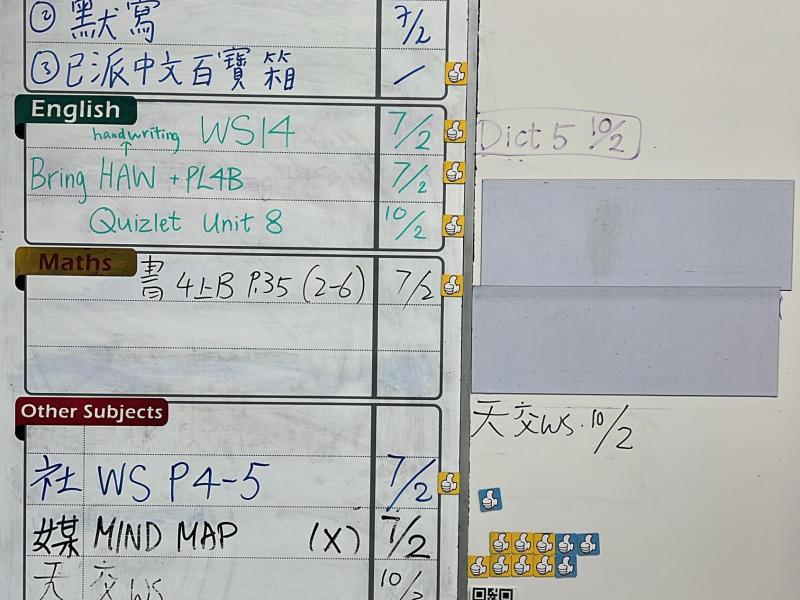 ② 默寫 7/2
③ 已派中文百寶箱 /
English
handwriting WS14 7/2
↑
Bring HAW + PL4B 7/2
Quizlet Unit 8 10/2
Dict 5 10/2
Maths
書 4上B P.35 (2-6) 7/2
Other Subjects
社 WS P4-5 7/2
媒 MIND MAP (X) 7/2
天 交 WS 10/2
天 交 WS. 10/2